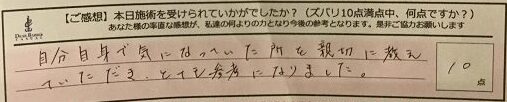 【ご感想】本日施術を受けられていかがでしたか？（ズバリ10点満点中、何点ですか？）
あなた様の率直な感想が、私達の何よりの力となり今後の参考となります。是非ご協力お願いします
自分自身で気になっていた所を親切に教え
ていただき、とても参考になりました。
10
点